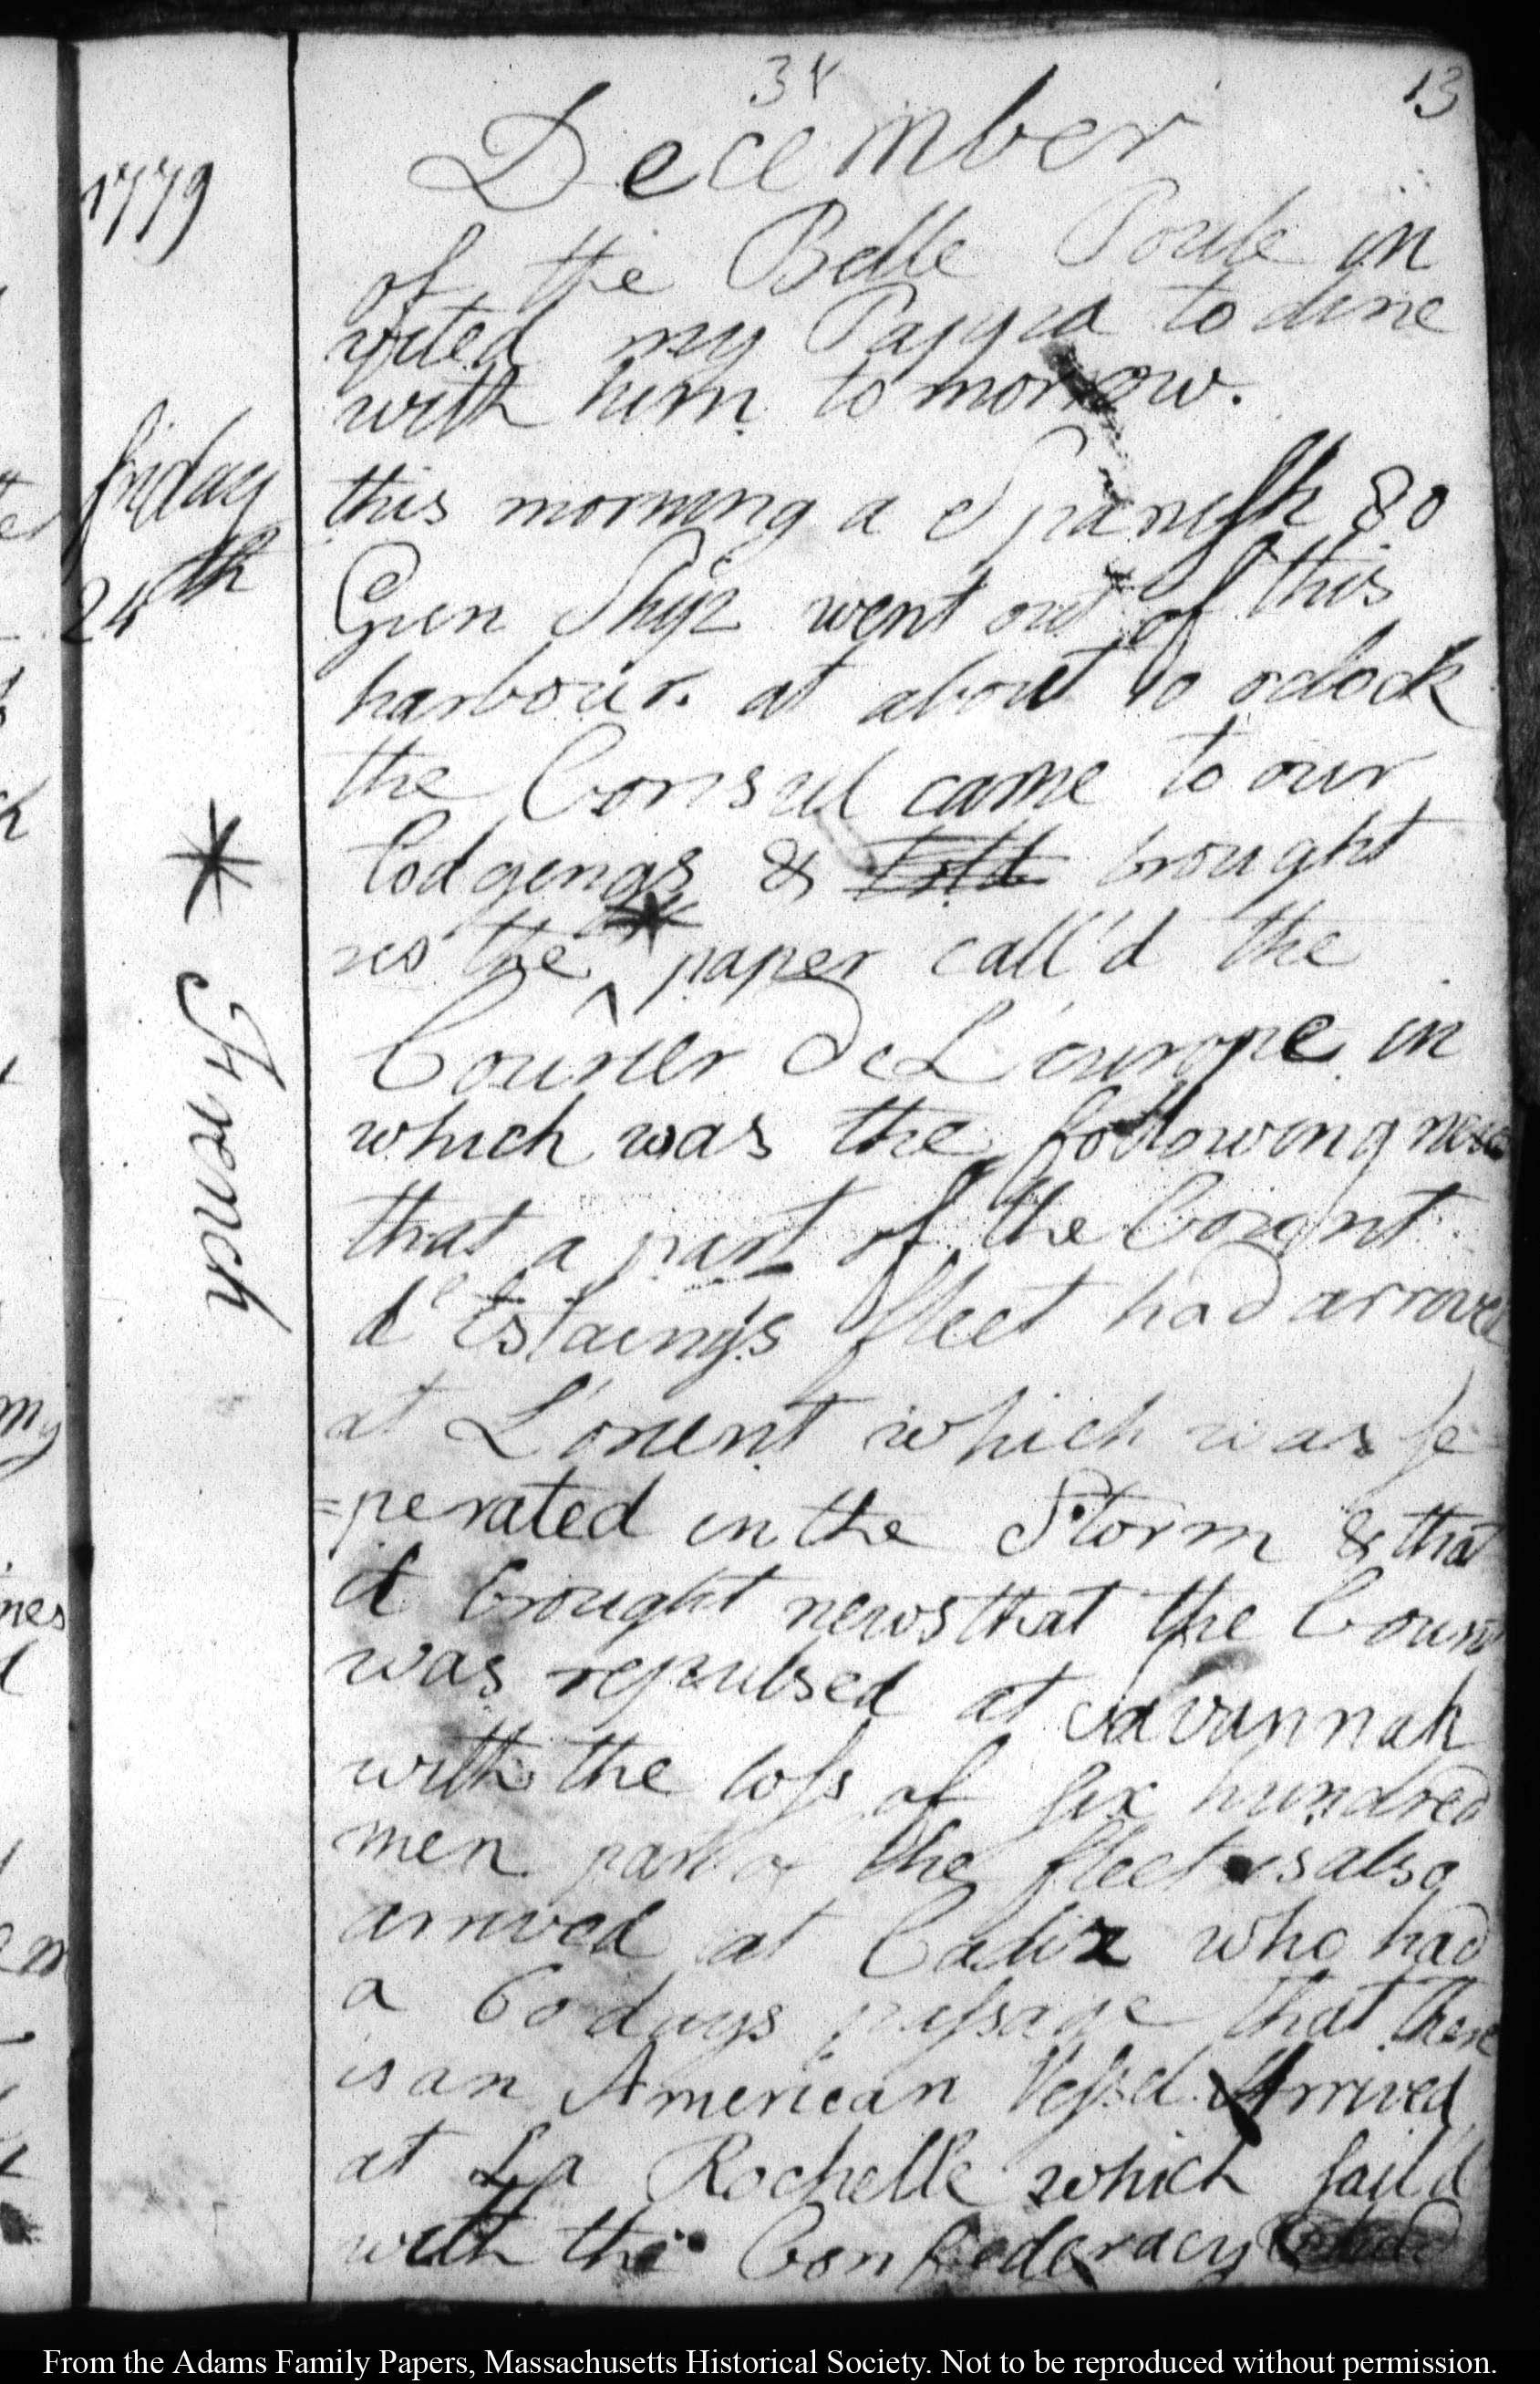 13
December
1779
of the Belle Poule in
vited my Pappa to dine
with him to morrow.
friday
24th
this morning a Spanish 80
Gun Ship went out of this
harbour. at about 10 oclock
the Consul came to our
lodgings & told brought
us the * paper call'd the
* French
Courier De L'europe in
which was the following news
that a part of the Count
de Estaing's fleet had arrived
at L'orient which was se
=perated in the Storm & that
it brought news that the Count
was repulsed at Savannah
with the loss of six hundred
men part of the fleet is also
arrived at Cadiz who had
a 60 days passage that there
is an American Vessel Arrived
at La Rochelle which sail'd
with the Confederacy
From the Adams Family Papers, Massachusetts Historical Society. Not to be reproduced without permission.